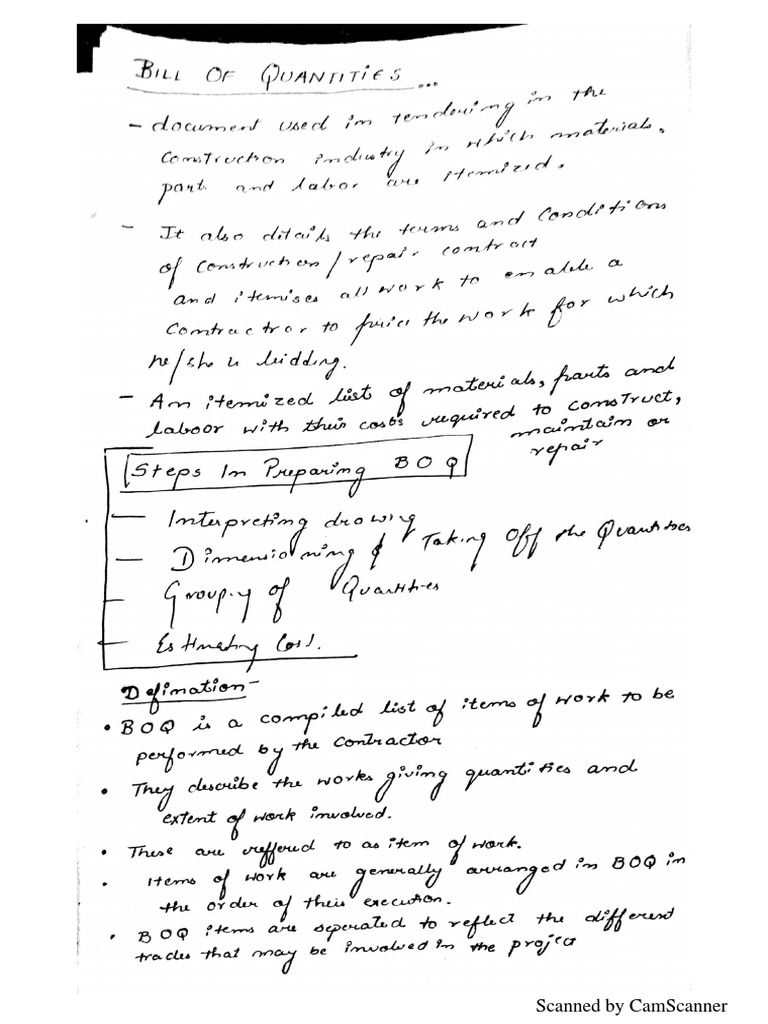 BILL OF QUANTITIES ...
- document used in tendering in the
construction industry in which materials,
part and labor are itemized.
- It also ditails the terms and conditions
of construction/repair contract
and itemises all work to enable a
contractror to price the work for which
he/she is bidding.
- An itemized list of materials, parts and
laboor with their costs required to construct,
maintain or
repair
Steps In Preparing BOQ
- Interpreting drowing
- Dimensioning & Taking Off the Quantities
- Grouping of Quantities
- Estimating Cost.
Defination -
• BOQ is a compiled list of items of work to be
performed by the contractor
• They describe the works giving quantities and
extent of work involved.
• These are reffered to as item of work.
• Items of work are generally arranged in BOQ in
the order of their execution.
• BOQ items are seperated to reflect the different
trades that may be involved in the project
Scanned by CamScanner